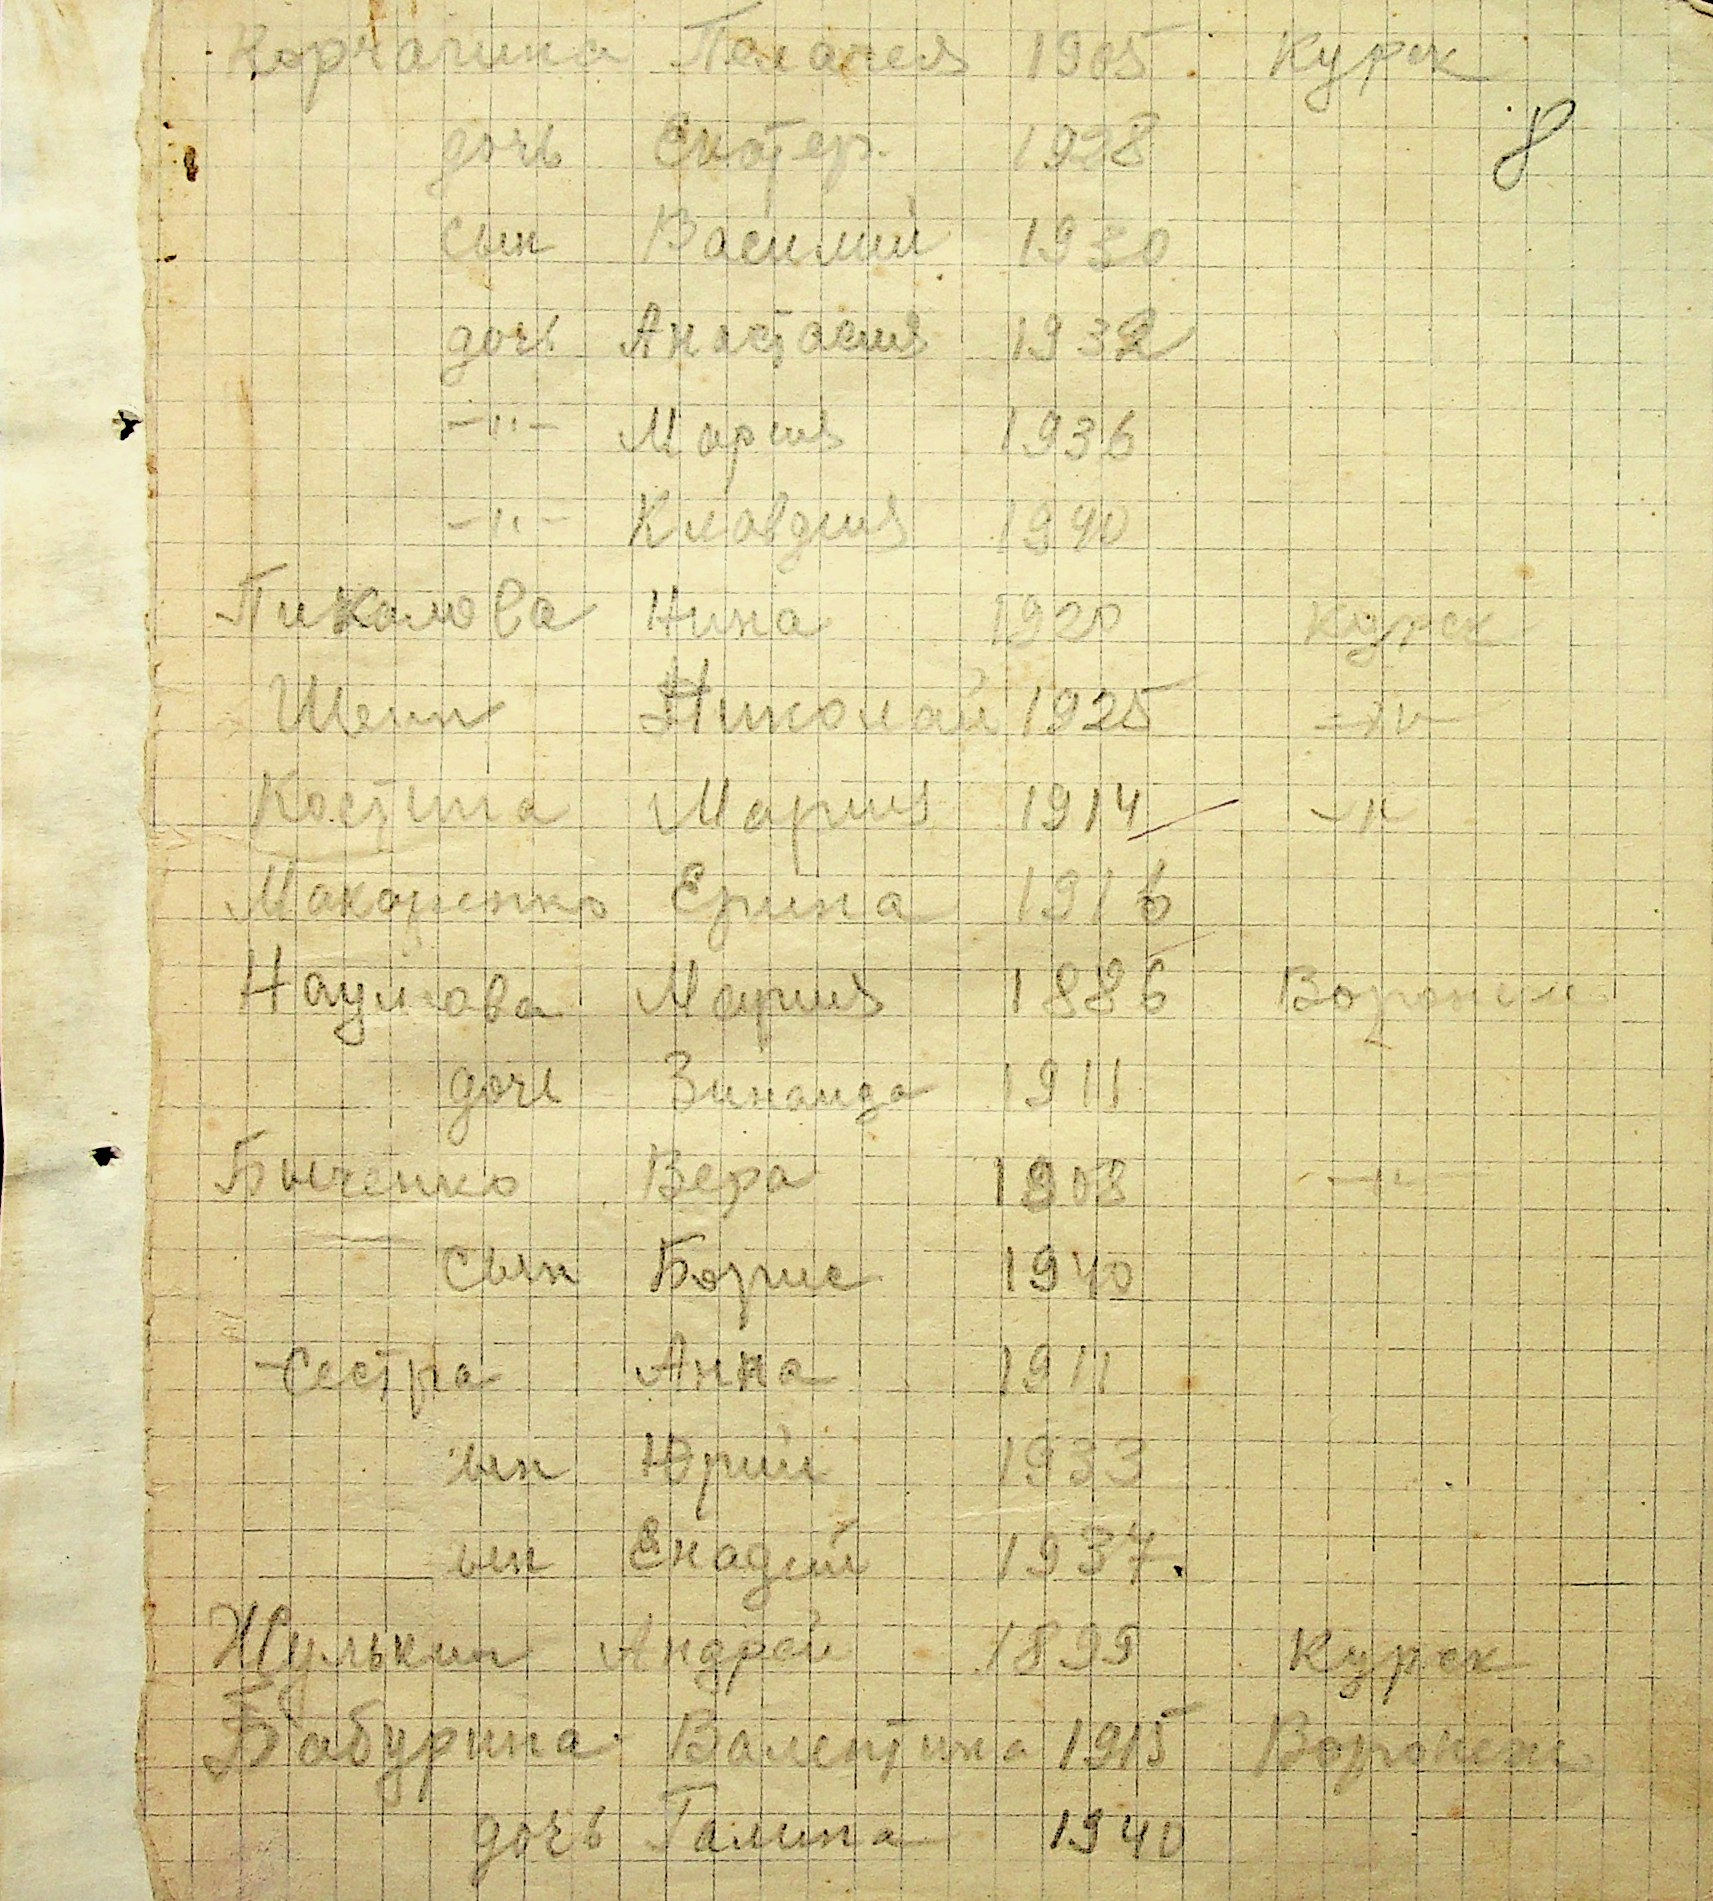 Корчагина Пелагея 1905 Курск
8
дочь Екатер. 1928
сын Василий 1930
дочь Анастасия 1932
-"- Мария 1936
-"- Клавдия 1940
Пикалова Нина 1920 Курск
Николай 1925 -"-
Костина Мария 1914 -"
Макаренко Ерина 1916
Наумова Мария 1886 Воронеж
дочь Зинаида 1911
Быченко Вера 1908 -"-
сын Борис 1940
сестра Анна 1911
сын Юрий 1933
сын Енадий 1937.
Жулькин Андрей 1899 Курск
Бабурина Валентина 1915 Воронеж
дочь Галина 1940